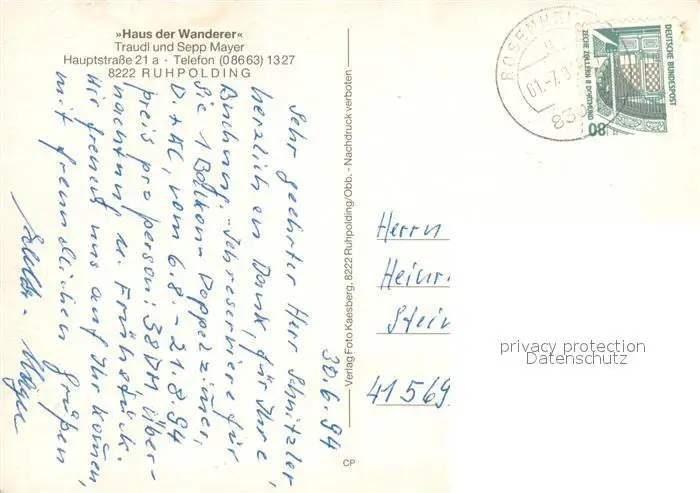 »Haus der Wanderer«
Traudl und Sepp Mayer
Hauptstraße 21 a · Telefon (0 86 63) 13 27
8222 RUHPOLDING
30.6.94
Sehr geehrter Herr Schnitzler
herzlichen Dank, für Ihre
Buchung. - Ich reserviere für
Sie 1 Balkon-Doppelzimmer,
D. + WC, vom 6.8 - 21.8 94
preis pro person: 38 DM Über-
nachtung u. Frühstück.
Wir freuen uns auf Ihr komen,
mit freundlichen Grüßen
Verlag Foto Kaesberg, 8222 Ruhpolding/Obb. - Nachdruck verboten
CP
ROSENHEIM
01.-7.9
830
DEUTSCHE BUNDESPOST
ZECHE ZOLLERN II DORTMUND
80
Herrn
Heinri
Stein
41569
privacy protection
Datenschutz